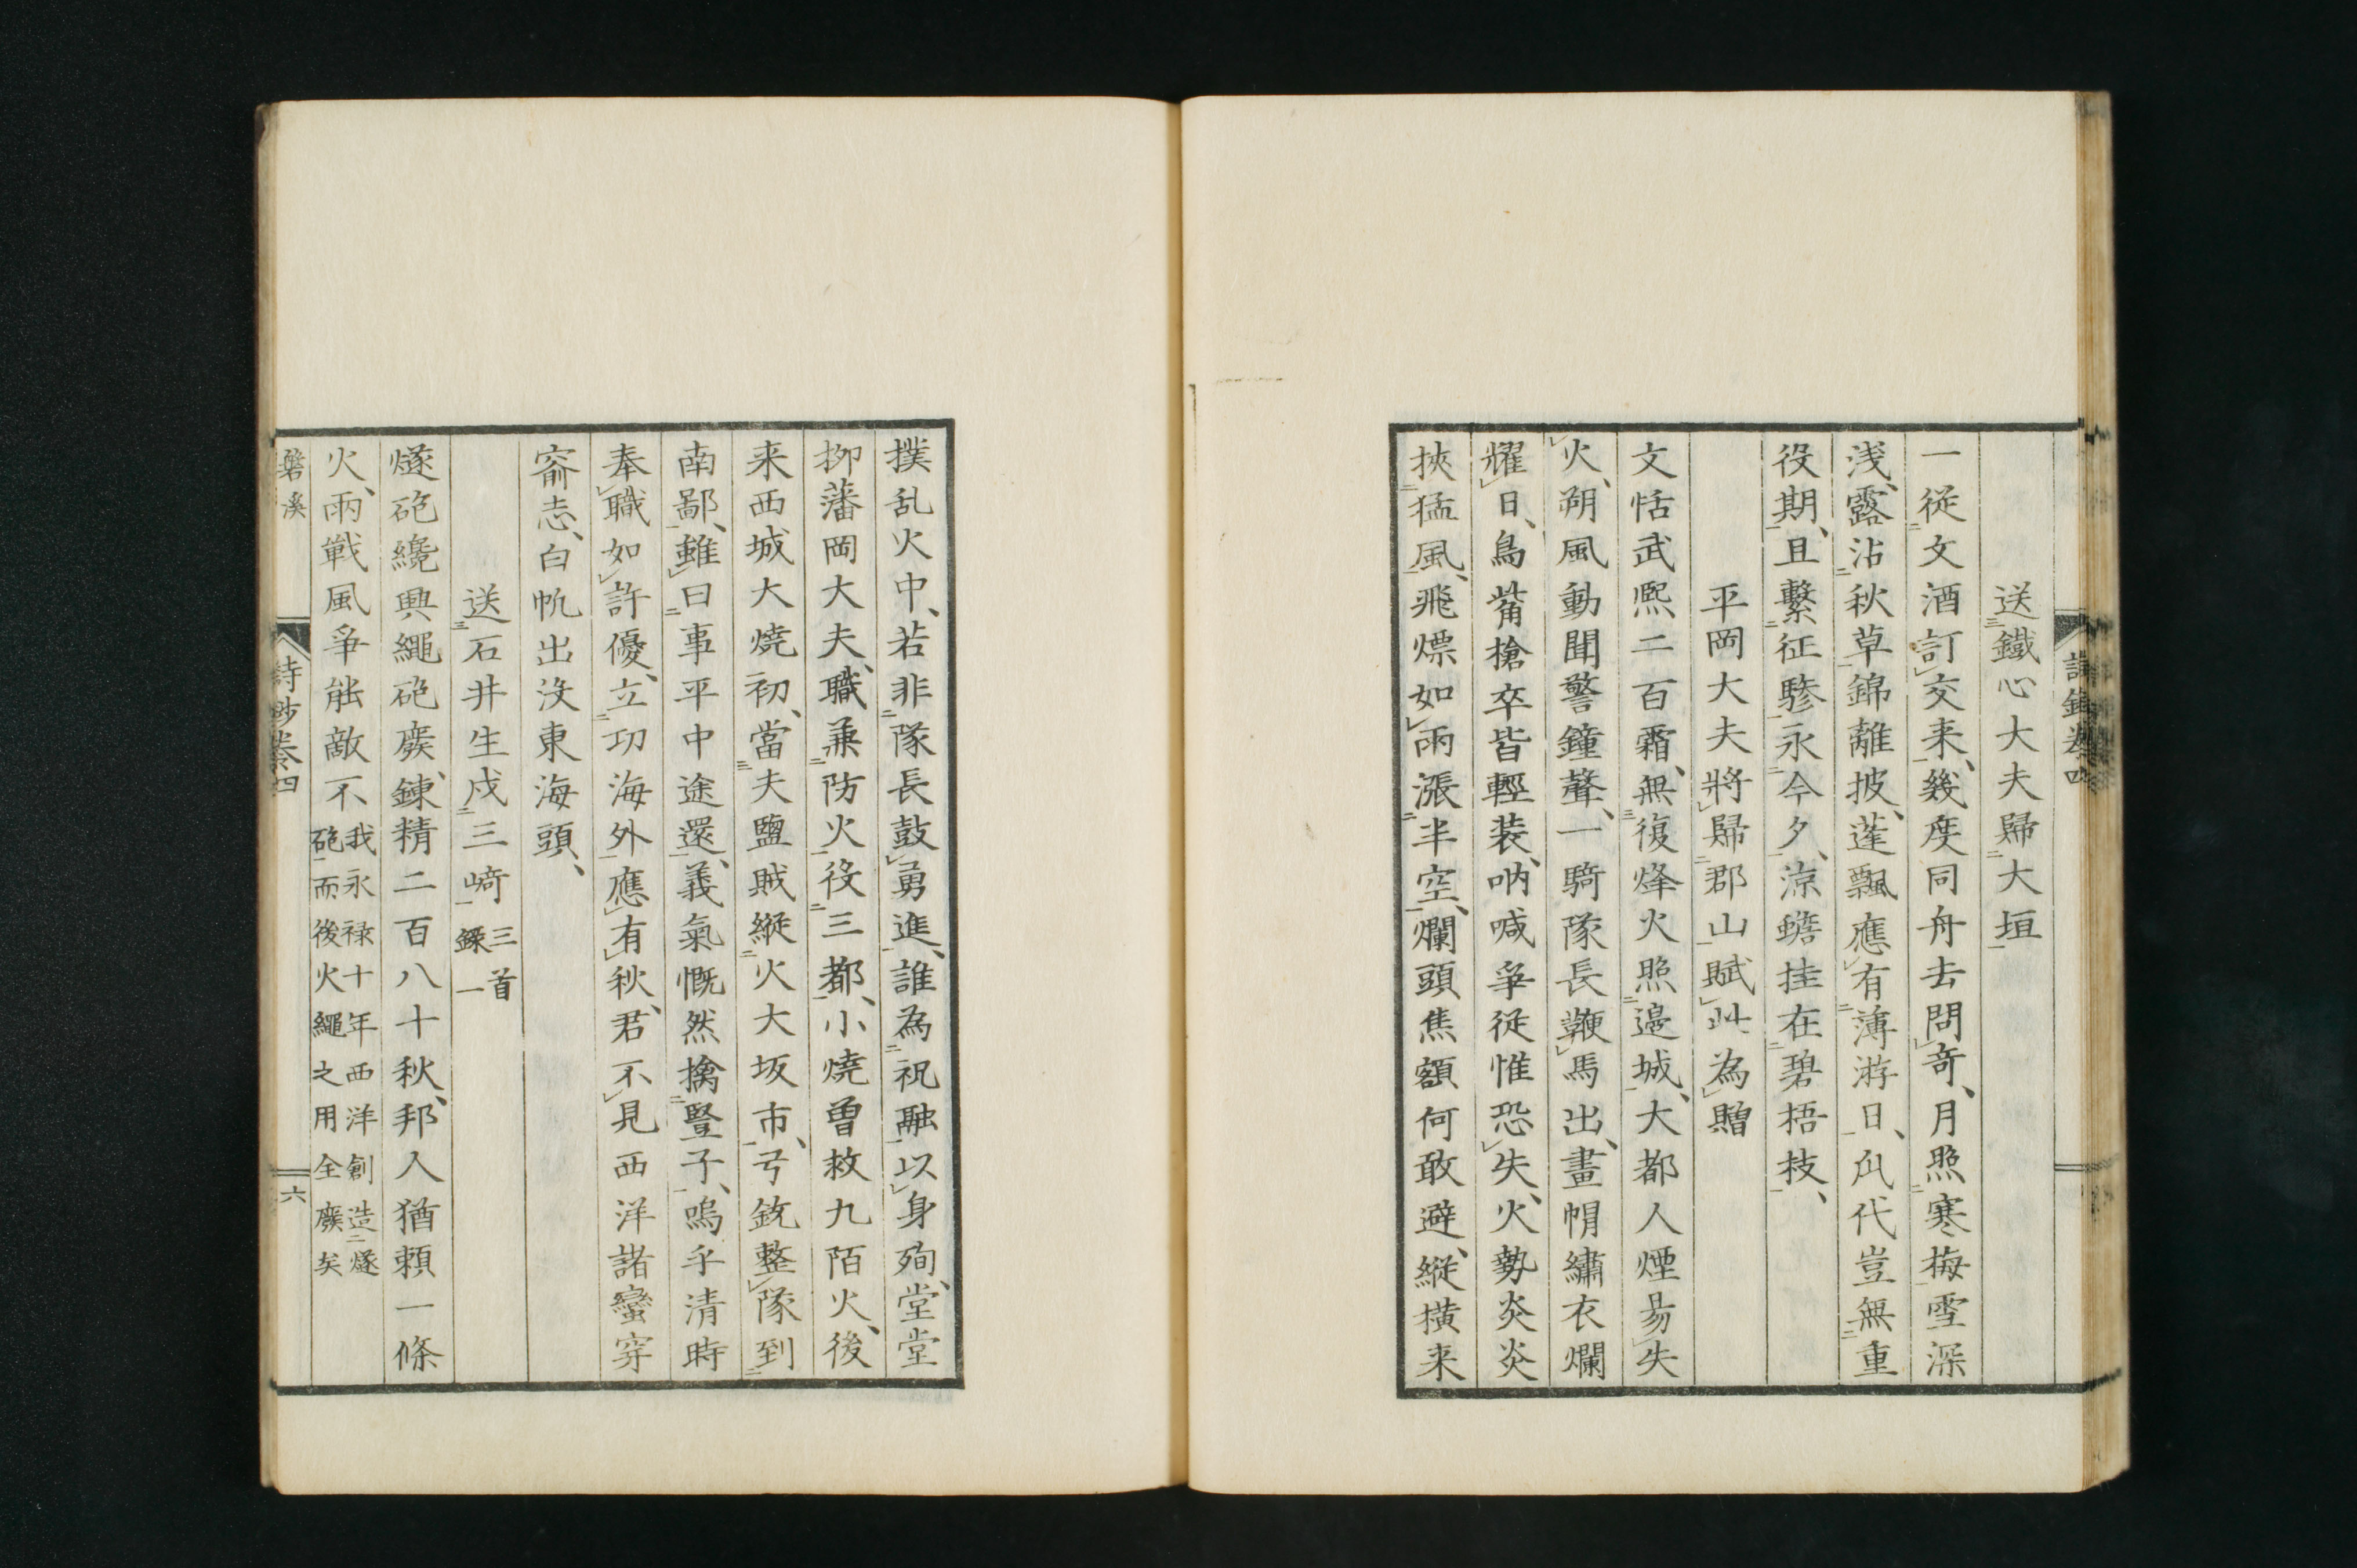 送鐵心大夫歸大垣
一從文酒訂交来、幾度同舟去問奇、月照寒梅雪深
浅、露沾秋草錦離披、蓬飄應有薄游日、瓜代豈無重
役期、且繫征驂永今夕、涼蟾挂在碧梧枝、
平岡大夫將歸郡山賦此為贈
文恬武熙二百霜、無復烽火照邊城、大都人煙易失
火、朔風動聞警鐘聲、一騎隊長鞭馬出、畫帽繡衣爛
耀日、鳥觜槍卒皆輕装、吶喊爭從惟恐失、火勢炎炎
挾猛風、飛熛如雨漲半空、爛頭焦額何敢避、縱橫来
撲乱火中、若非隊長鼓勇進、誰為祝融以身殉、堂堂
柳藩岡大夫、職兼防火役三都、小燒曽救九陌火、後
来西城大燒初、當夫鹽賊縱火大坂市、弓銃整隊到
南鄙、雖曰事平中途還、義氣慨然擒豎子、嗚乎清時
奉職如許優、立功海外應有秋、君不見西洋諸蠻穿
窬志、白帆出没東海頭、
送石井生戍三崎 三首錄一
燧砲纔興繩砲廢、鍊精二百八十秋、邦人猶賴一條
火、雨戰風爭能敵不 我永禄十年西洋創造燧
砲而後火繩之用全廢矣
磐溪
詩鈔卷四
六